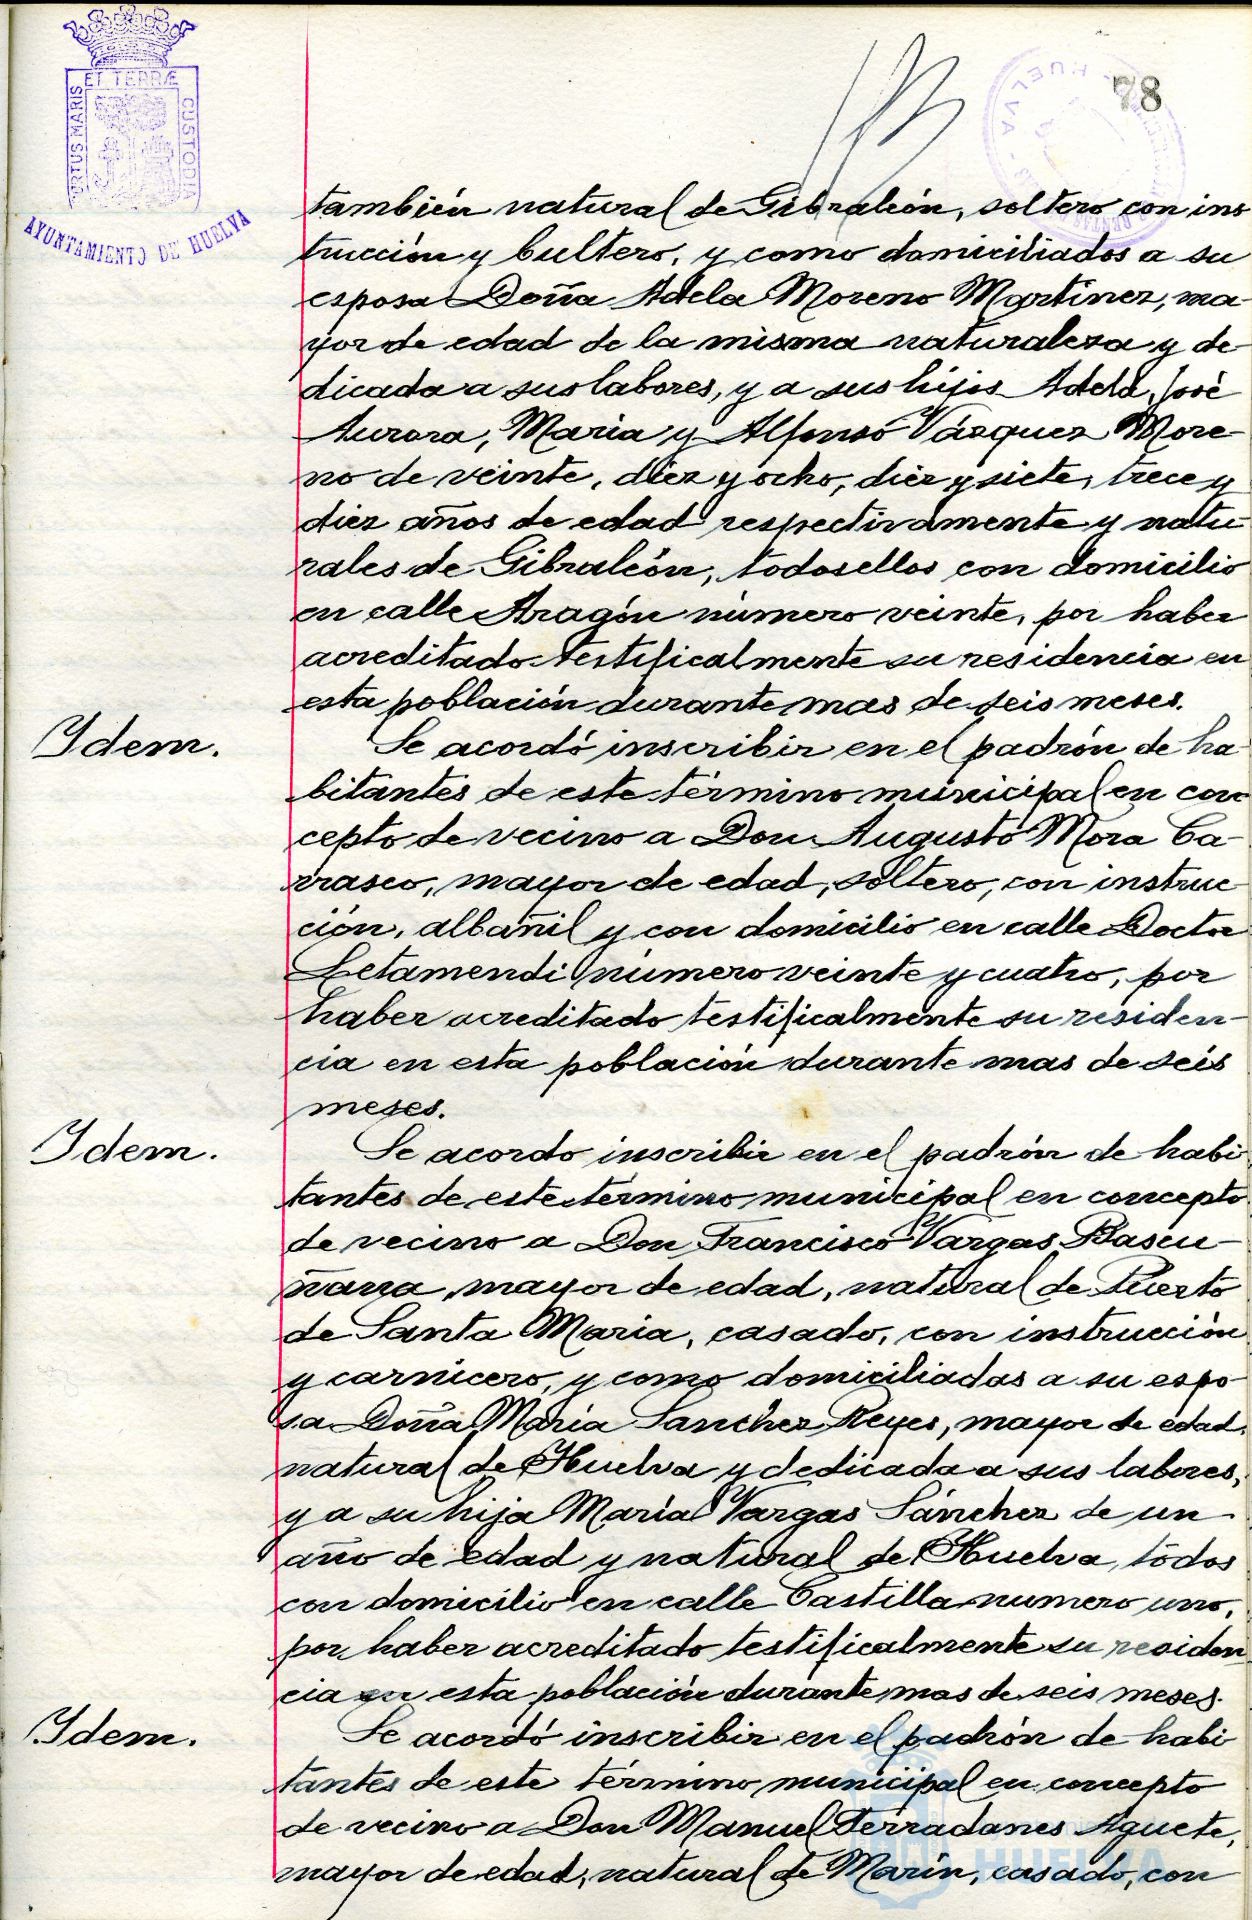 78
PORTUS MARIS ET TERRÆ CUSTODIA
AYUNTAMIENTO DE HUELVA
HUELVA
también natural de Gibraleón, soltero con ins
trucción y bultero, y como domiciliados a su
esposa Doña Adela Moreno Martínez, ma-
yor de edad de la misma naturaleza y de-
dicada a sus labores, y a sus hijos Adela, José
Aurora, Maria y Alfonso Vázquez More-
no de veinte, diez y ocho, diez y siete, trece y
diez años de edad respectivamente y natu-
rales de Gibraleón, todos ellos con domicilio
en calle Aragón número veinte, por haber
acreditado testificalmente su residencia en
esta población durante mas de seis meses.
Idem.
Se acordó inscribir en el padrón de ha-
bitantes de este término municipal en con
cepto de vecino a Don Augusto Mora Ca-
rrasco, mayor de edad, soltero, con instruc-
ción, albañil y con domicilio en calle Doctor
Letamendi número veinte y cuatro, por
haber acreditado testificalmente su residen-
cia en esta población durante mas de seis
meses.
Idem.
Se acordo inscribir en el padrón de habi
tantes de este término municipal en concepto
de vecino a Don Francisco Vargas Bascu-
ñana, mayor de edad, natural de Puerto
de Santa Maria, casado, con instrucción
y carnicero, y como domiciliadas a su espo
sa Doña Maria Sanchez Reyes, mayor de edad,
natural de Huelva y dedicada a sus labores,
y a su hija María Vargas Sánchez de un
año de edad y natural de Huelva, todos
con domicilio en calle Castilla numero uno,
por haber acreditado testificalmente su residen
cia en esta población durante mas de seis meses.
Idem.
Se acordó inscribir en el padrón de habi
tantes de este término municipal en concepto
de vecino a Don Manuel Ferradanes Aguete,
mayor de edad, natural de Marín, casado, con
HUELVA